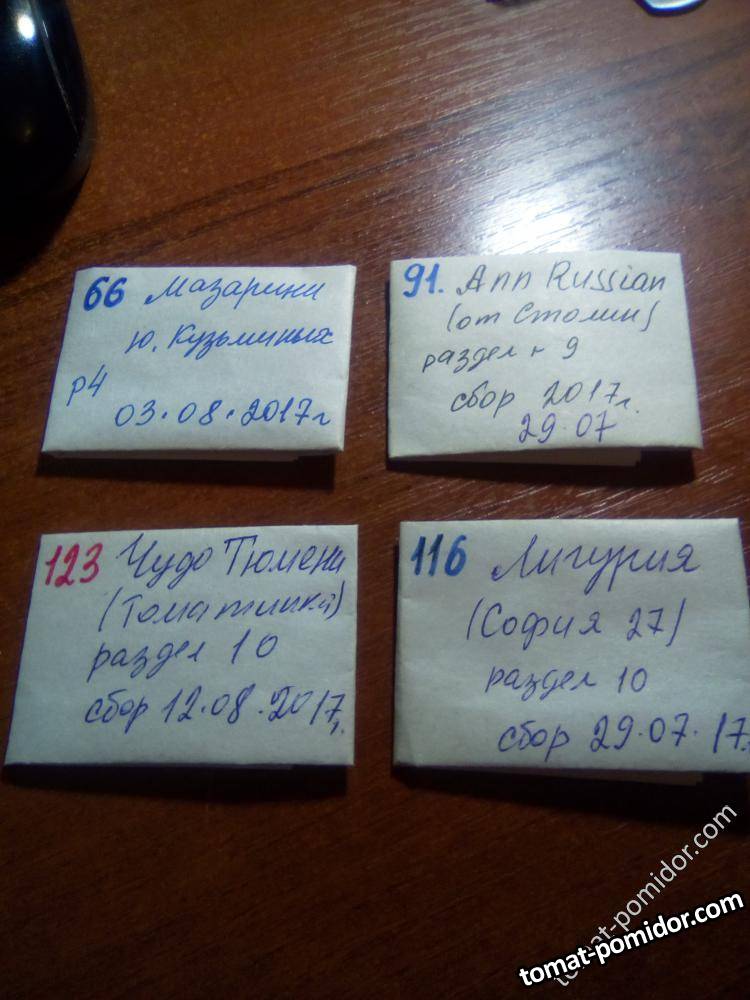 66 Мазарини
Ю. Кузьминых
р4
03.08.2017г
91. Ann Russian
(от Столин)
раздел - 9
сбор 2017г.
29.07
123 Чудо Тюмени
(Томатинка)
раздел 10
сбор 12.08.2017г.
116 Лигурия
(София 27)
раздел 10
сбор 29.07.17г.
tomat-pomidor.com
tomat-pomidor.com